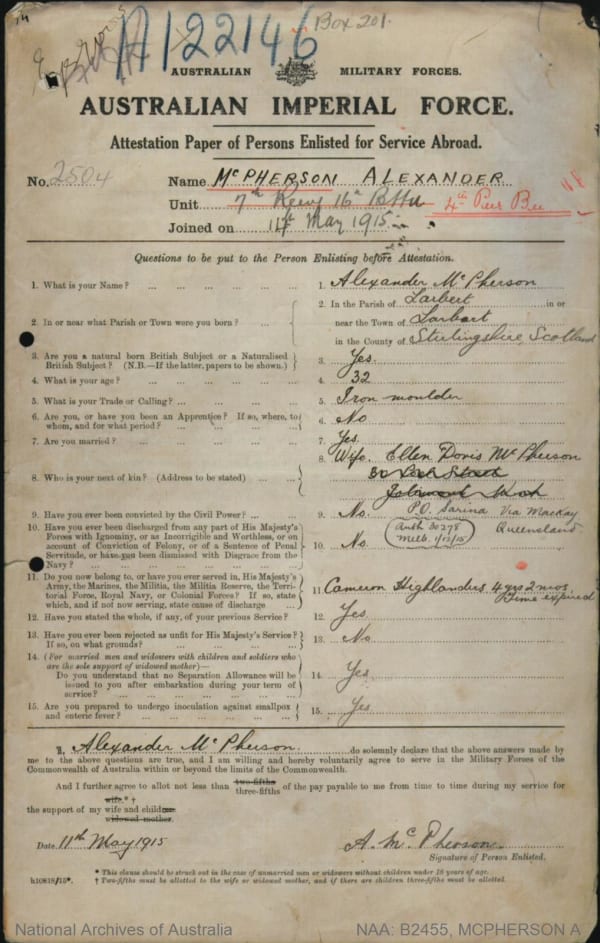 A122146 Box 201.
AUSTRALIAN MILITARY FORCES.
AUSTRALIAN IMPERIAL FORCE.
Attestation Paper of Persons Enlisted for Service Abroad.
No. 2504 Name McPHERSON ALEXANDER
Unit 7th 16th 4th
Joined on 14th May 1915
Questions to be put to the Person Enlisting before Attestation.
1. What is your Name? ... 1. Alexander McPherson
2. In or near what Parish or Town were you born? ... 2. In the Parish of Larbert in or
near the Town of Larbert
in the County of Stirlingshire, Scotland
3. Are you a natural born British Subject or a Naturalised
British Subject? (N.B.—If the latter, papers to be shown.) 3. Yes.
4. What is your age? ... 4. 32
5. What is your Trade or Calling? ... 5. Iron moulder
6. Are you, or have you been an Apprentice? If so, where, to
whom, and for what period? ... 6. No
7. Are you married? ... 7. Yes.
8. Who is your next of kin? (Address to be stated) ... 8. Wife. Ellen Doris McPherson
30 Street
P.O. Sarina Via Mackay
Queensland.
Auth 30278
Melb. 1/12/15
9. Have you ever been convicted by the Civil Power? ... 9. No.
10. Have you ever been discharged from any part of His Majesty's
Forces with Ignominy, or as Incorrigible and Worthless, or on
account of Conviction of Felony, or of a Sentence of Penal
Servitude, or have you been dismissed with Disgrace from the
Navy? ... 10. No.
11. Do you now belong to, or have you ever served in, His Majesty's
Army, the Marines, the Militia, the Militia Reserve, the Terri-
torial Force, Royal Navy, or Colonial Forces? If so, state
which, and if not now serving, state cause of discharge ... 11. Cameron Highlanders 4 yrs 2 mos
Time expired
12. Have you stated the whole, if any, of your previous Service? 12. Yes
13. Have you ever been rejected as unfit for His Majesty's Service?
If so, on what grounds? ... 13. No.
14. (For married men and widowers with children and soldiers who
are the sole support of widowed mother)—
Do you understand that no Separation Allowance will be
issued to you after embarkation during your term of
service? ... 14. Yes
15. Are you prepared to undergo inoculation against smallpox
and enteric fever? ... 15. Yes
I, Alexander McPherson. do solemnly declare that the above answers made by
me to the above questions are true, and I am willing and hereby voluntarily agree to serve in the Military Forces of the
Commonwealth of Australia within or beyond the limits of the Commonwealth.
And I further agree to allot not less than two-fifths
three-fifths of the pay payable to me from time to time during my service for
wife.* †
the support of my wife and children
widowed mother.
Date 11th May 1915 A. McPherson.
Signature of Person Enlisted.
* This clause should be struck out in the case of unmarried men or widowers without children under 18 years of age.
h10818/15*. † Two-fifths must be allotted to the wife or widowed mother, and if there are children three-fifths must be allotted.
National Archives of Australia NAA: B2455, MCPHERSON A